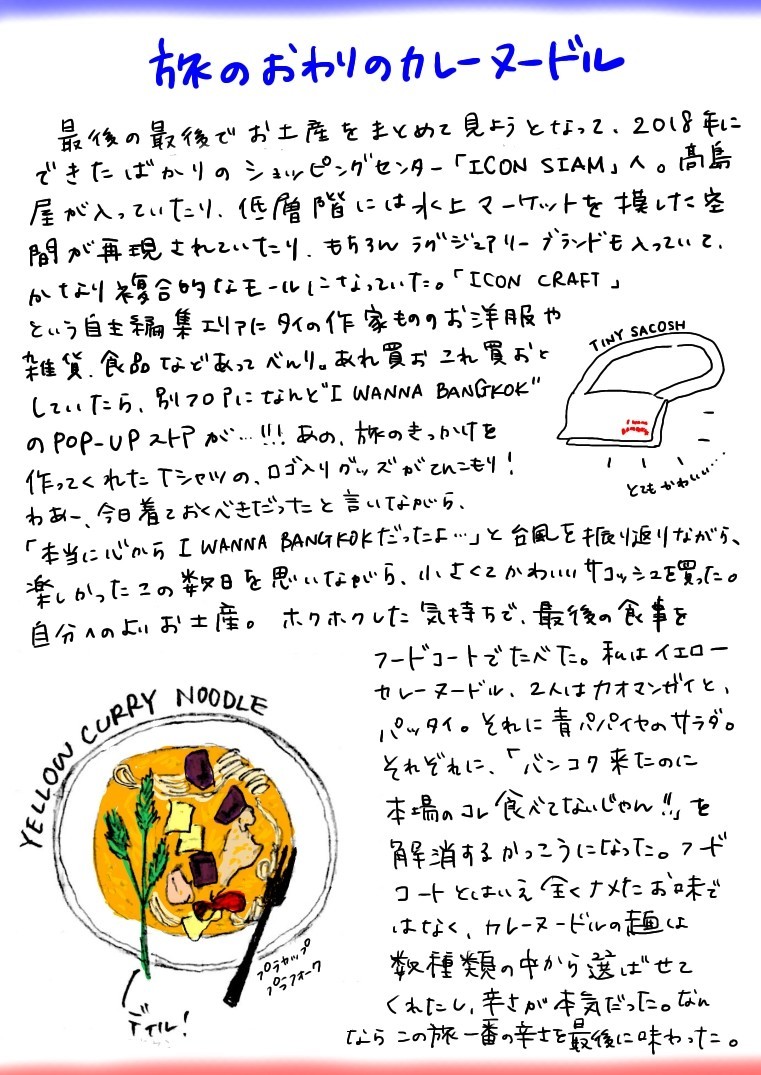 旅のおわりのカレーヌードル
最後の最後でお土産をまとめて見ようとなって、2018年に
できたばかりのショッピングセンター「ICON SIAM」へ。高島
屋が入っていたり、低層階には水上マーケットを模した空
間が再現されていたり、もちろんラグジュアリーブランドも入っていて、
かなり複合的なモールになっていた。「ICON CRAFT」
という自主編集エリアにタイの作家もののお洋服や
雑貨、食品などあってべんり。あれ買お これ買おと
していたら、別フロアになんと"I WANNA BANGKOK"
のPOP-UPストアが…!!! あの、旅のきっかけを
作ってくれたTシャツの、ロゴ入りグッズがてんこもり!
わあー、今日着ておくべきだったと言いながら、
「本当に心からI WANNA BANGKOKだったよ…」と台風を振り返りながら、
楽しかったこの数日を思いながら、小さくてかわいいサコッシュを買った。
自分へのよいお土産。 ホクホクした気持ちで、最後の食事を
フードコートでたべた。私はイエロー
カレーヌードル、2人はカオマンガイと、
パッタイ。それに青パパイヤのサラダ。
それぞれに、「バンコク来たのに
本場のコレ食べてないじゃん!!」を
解消するかっこうになった。フード
コートとはいえ全くナメたお味で
はなく、カレーヌードルの麺は
数種類の中から選ばせて
くれたし、辛さが本気だった。なん
ならこの旅一番の辛さを最後に味わった。
TINY SACOSH
I WANNA BANGKOK
とてもかわいい…
YELLOW CURRY NOODLE
プラカップ
プラフォーク
ディル!